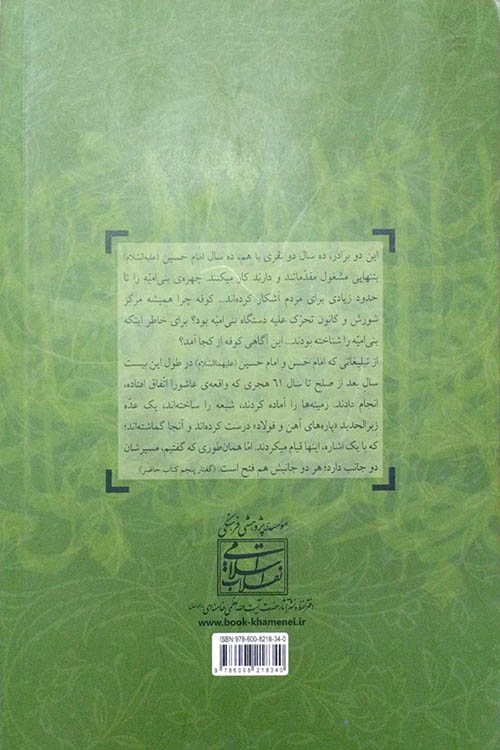 این دو برادر، ده سال دو نفری با هم، ده سال امام حسین (علیه‌السّلام)
بتنهایی مشغول مقدّماتند و دارند کار میکنند. چهره‌ی بنی‌امیّه را تا
حدود زیادی برای مردم آشکار کرده‌اند... کوفه چرا همیشه مرکز
شورش و کانون تحرّک علیه دستگاه بنی‌امیّه بود؟ برای خاطر اینکه
بنی‌امیّه را شناخته بودند... این آگاهی کوفه از کجا آمد؟
از تبلیغاتی که امام حسن و امام حسین (علیهماالسّلام) در طول این بیست
سال بعد از صلح تا سال ۶۱ هجری که واقعه‌ی عاشورا اتّفاق افتاده،
انجام دادند. زمینه‌ها را آماده کردند، شیعه را ساخته‌اند، یک عدّه
زبرالحدید (پاره‌های آهن و فولاد) درست کرده‌اند و آنجا گماشته‌اند؛
که با یک اشاره، اینها قیام میکردند. امّا همان‌طوری که گفتیم، مسیرشان
دو جانب دارد؛ هر دو جانبش هم فتح است. (گفتار پنجم کتاب حاضر)
مؤسسه‌ی پژوهشی فرهنگی
انقلاب اسلامی
دفتر حفظ و نشر آثار حضرت آیت‌الله‌العظمی خامنه‌ای
www.book-khamenei.ir
ISBN: 978-600-8218-34-0
9 786008 218340